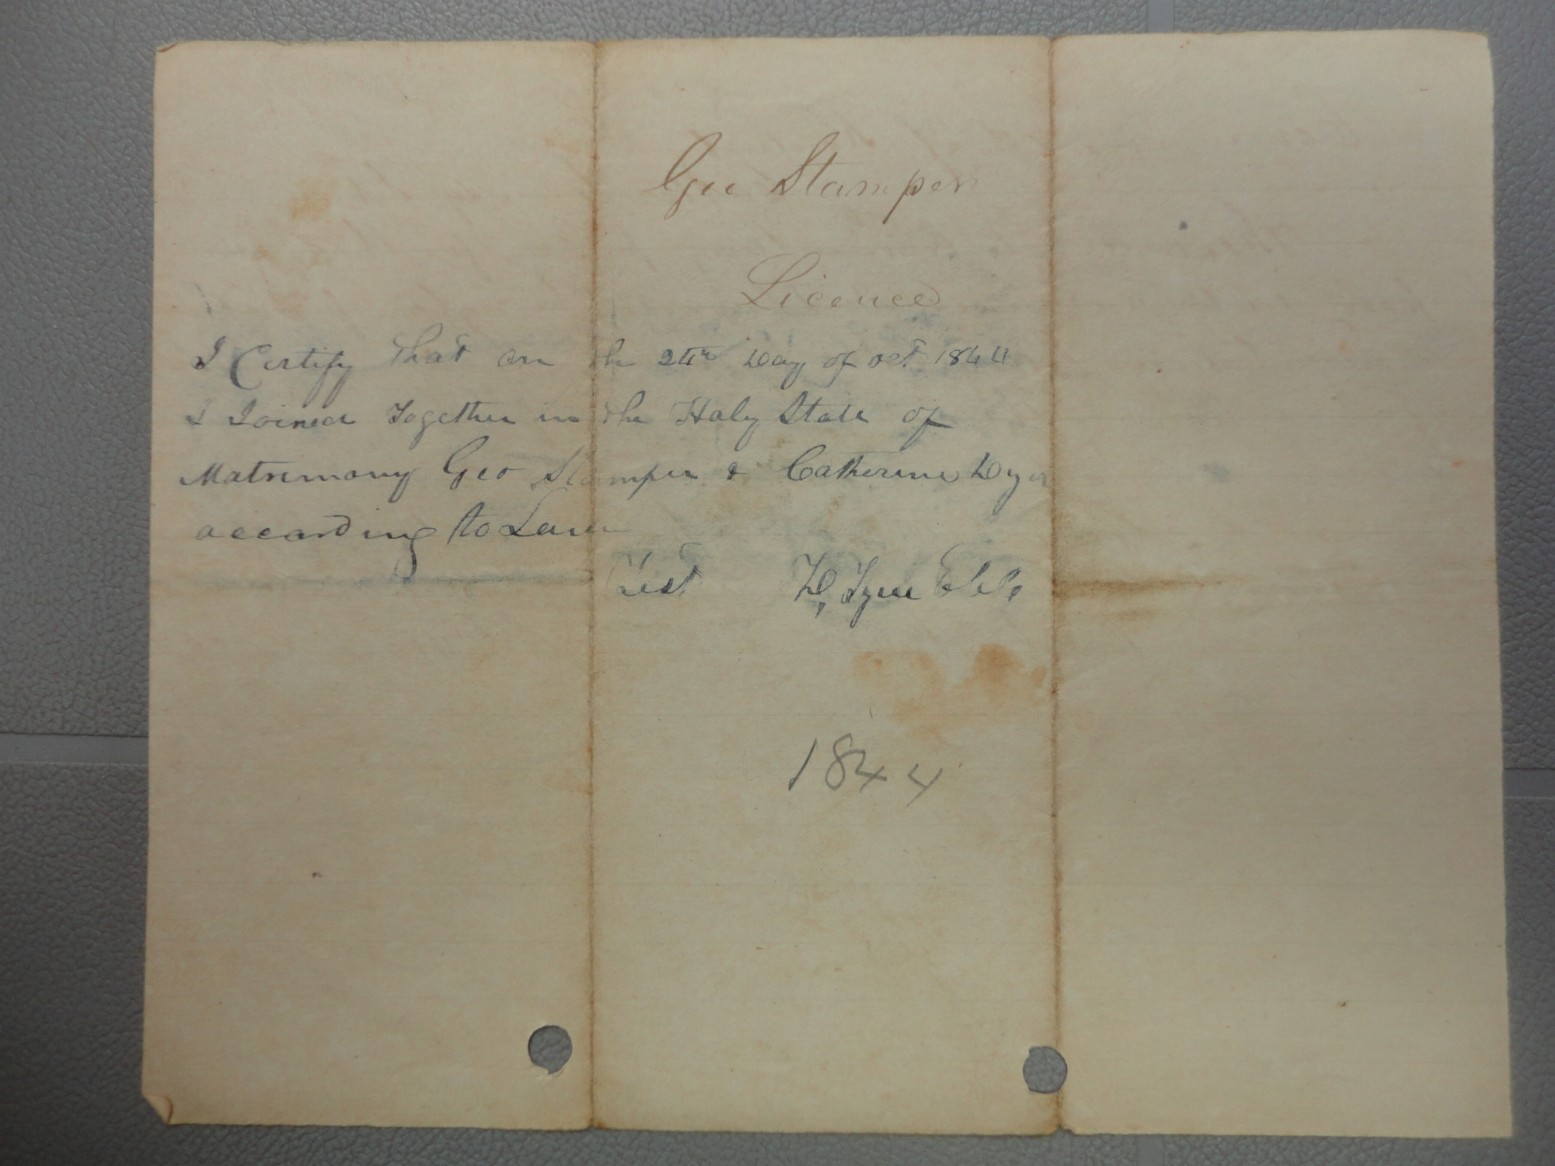 Geo Stamper
Licence
I Certify that on the 24th Day of oct 1844
I Joined Together in the Holy State of
Matrimony Geo Stamper & Catherine Dyer
according to Law
Test D, Tyree
1844